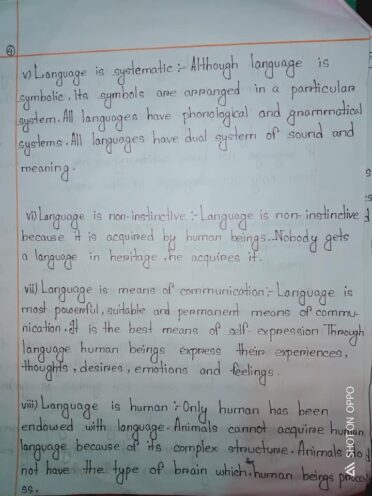 4
v) Language is systematic :- Although language is
symbolic, its symbols are arranged in a particular
system. All languages have phonological and grammatical
systems. All languages have dual system of sound and
meaning.
vi) Language is non-instinctive :- Language is non-instinctive
because it is acquired by human beings. Nobody gets
a language in heritage, he acquires it.
vii) Language is means of communication :- Language is
most powerful, suitable and permanent means of commu-
nication. It is the best means of self-expression Through
language human beings express their experiences,
thoughts, desires, emotions and feelings.
viii) Language is human :- Only human has been
endowed with language. Animals cannot acquire human
language because of its complex structure. Animals do
not have the type of brain which human beings
ss.
SHOT ON OPPO